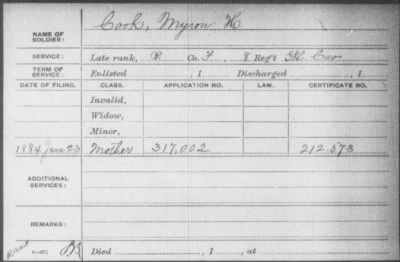 NAME OF SOLDIER: Cook, Myron H.
SERVICE: Late rank, P Co. F, 8 Reg't Ill Cav
TERM OF SERVICE: Enlisted , 1 Discharged , 1
DATE OF FILING. CLASS. APPLICATION NO. LAW. CERTIFICATE NO.
Invalid,
Widow,
Minor,
1884 June 23 Mother 317,002 212,573
ADDITIONAL SERVICES:
REMARKS:
Died , 1 , at